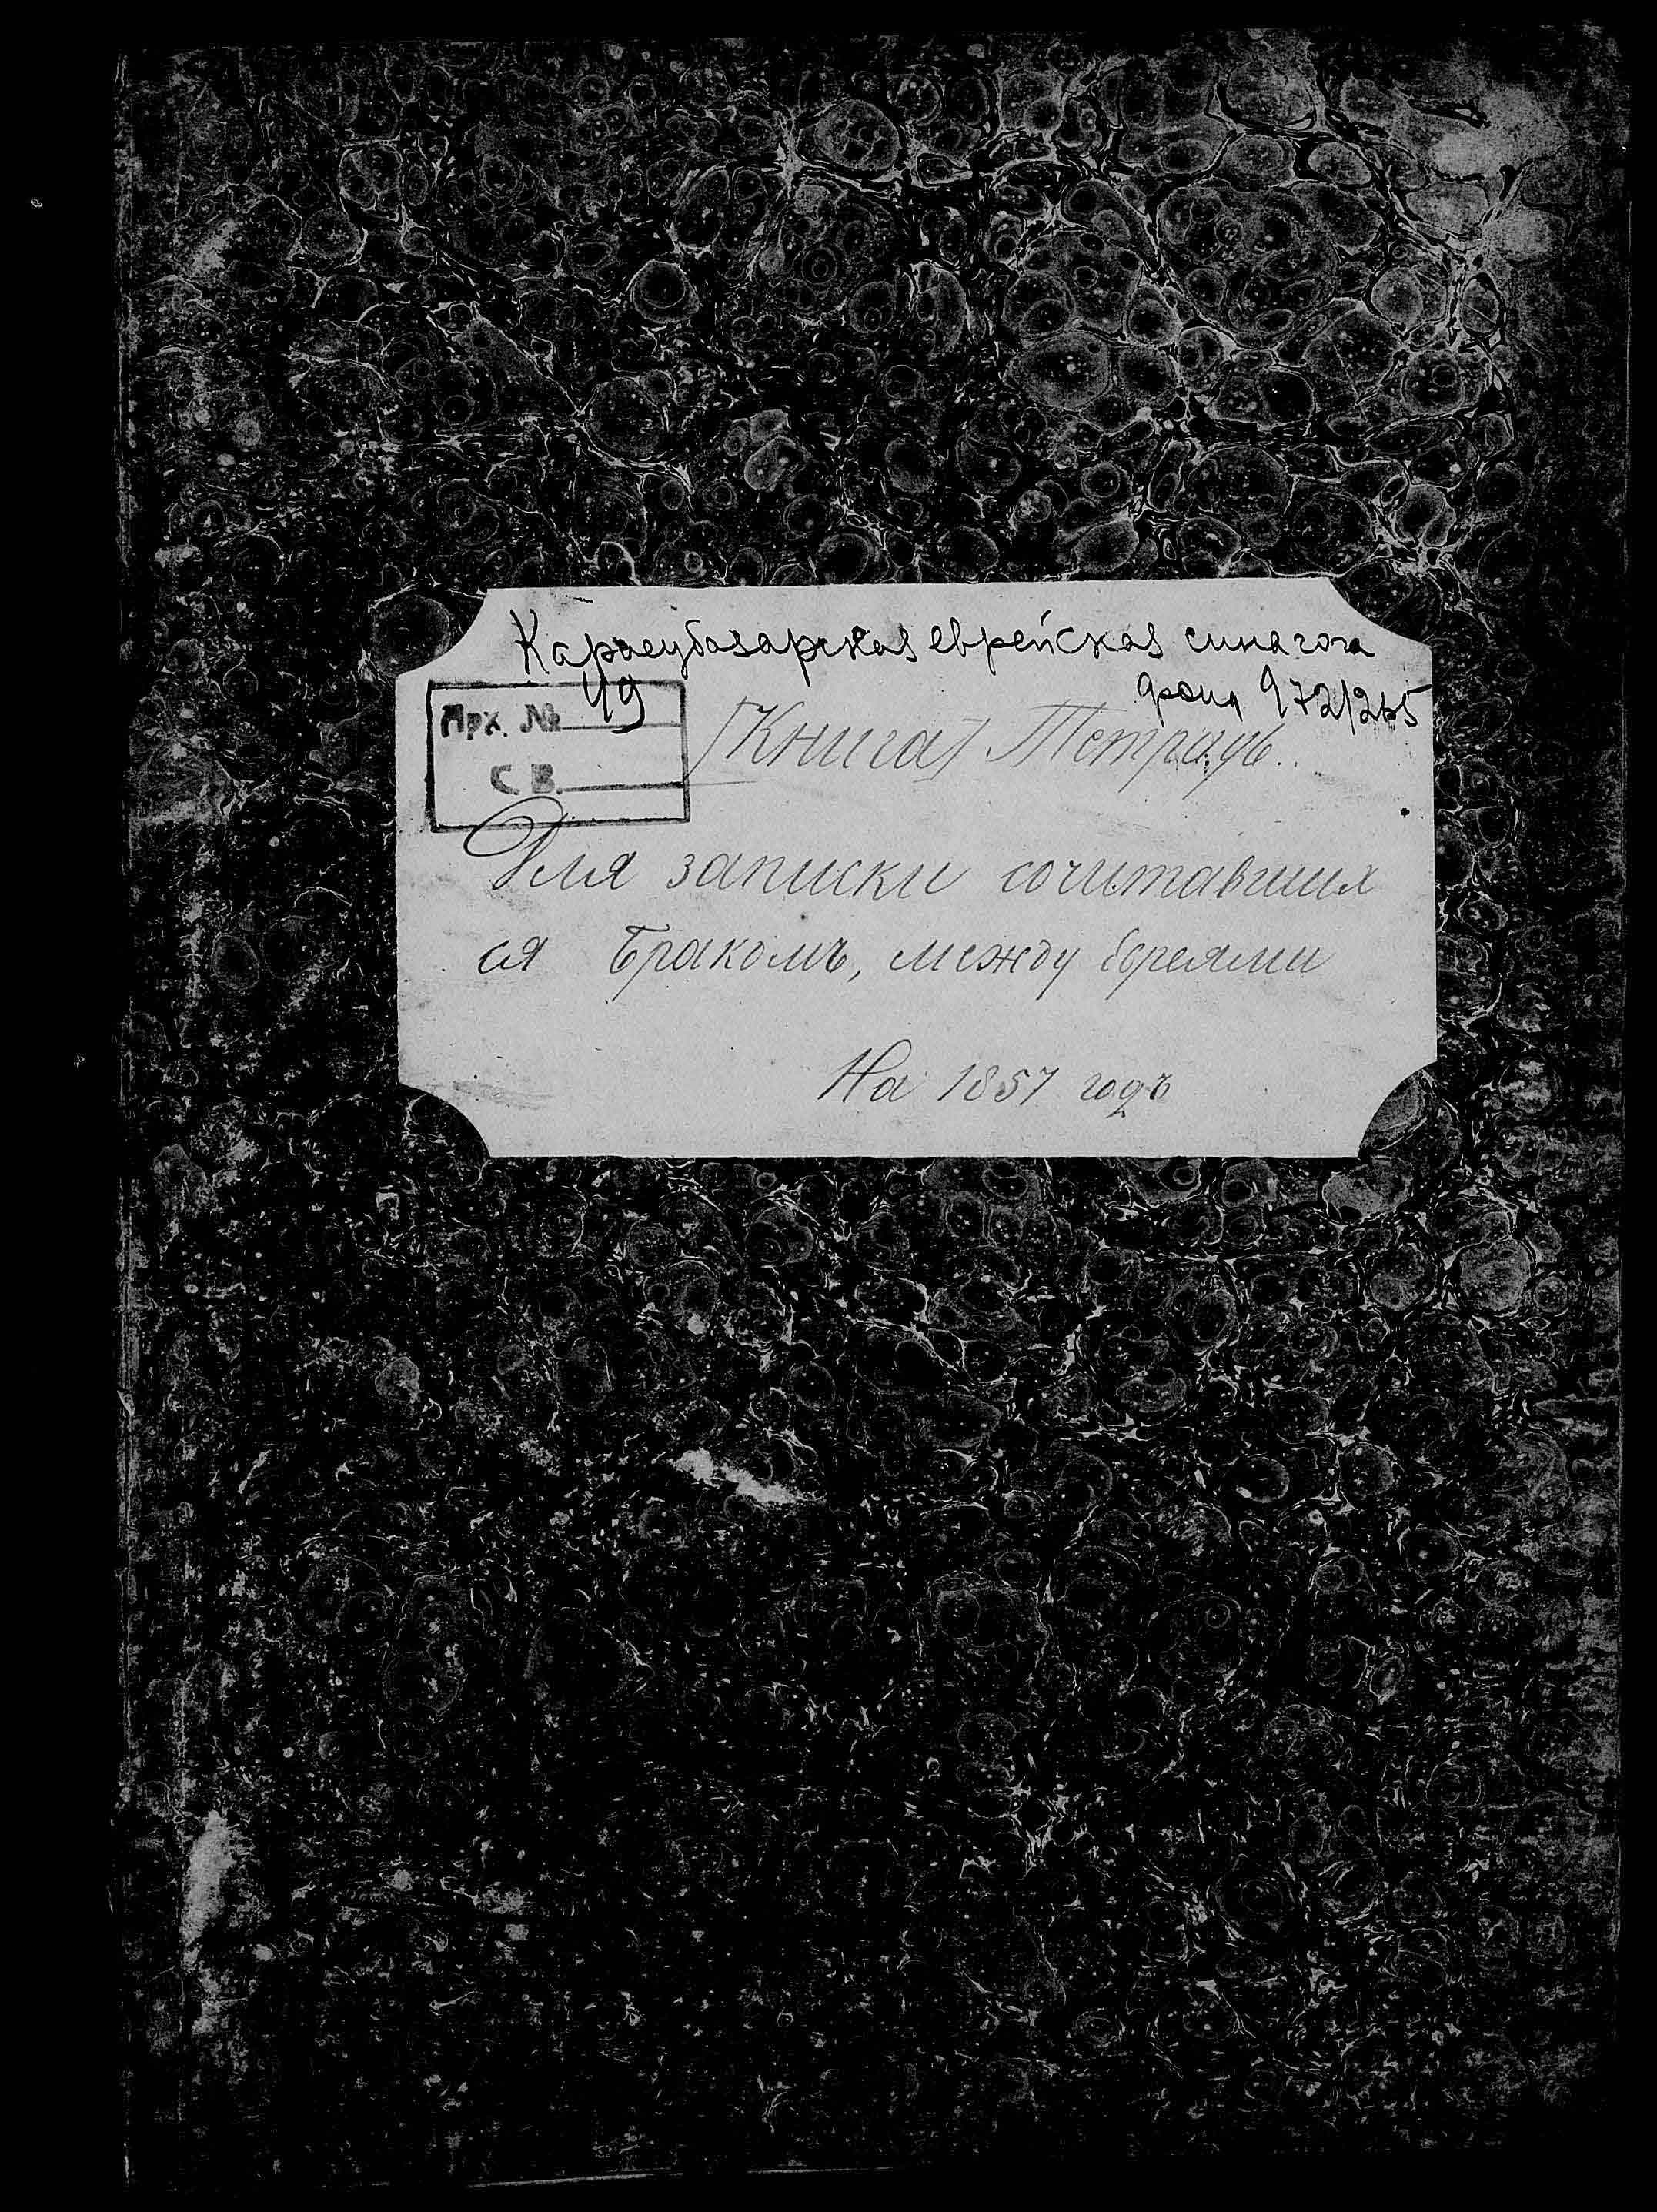 Карасубазарская еврейская синагога
49 фонд 972/265
Арх. №
[Книга] Тетрадь.
С. В.
Для записки сочитавших
ся бракомъ, между Евреями
На 1857 годъ